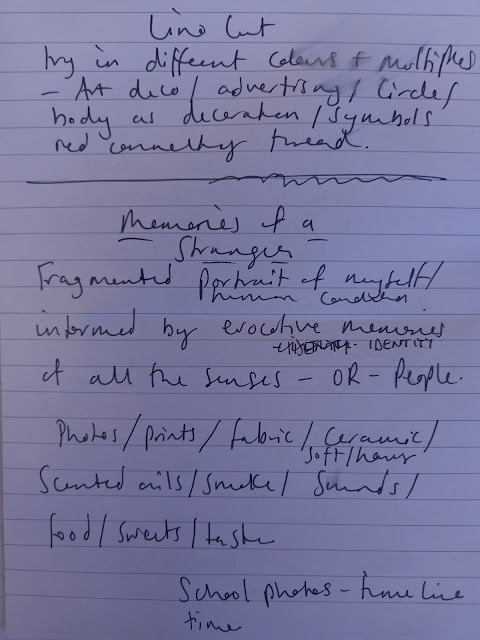 Lino Cut
try in different colours + multiples
- Art deco / advertising / Circles /
body as decoration / symbols
red connecting thread.
Memories of a
Stranger
Fragmented Portrait of myself /
human condition
informed by evocative memories
- IDENTITY
of all the senses - OR - People.
Photos / prints / fabric / ceramic /
soft / heavy
Scented oils / smoke / Sounds /
food / sweets / taste
School photos - time line
time